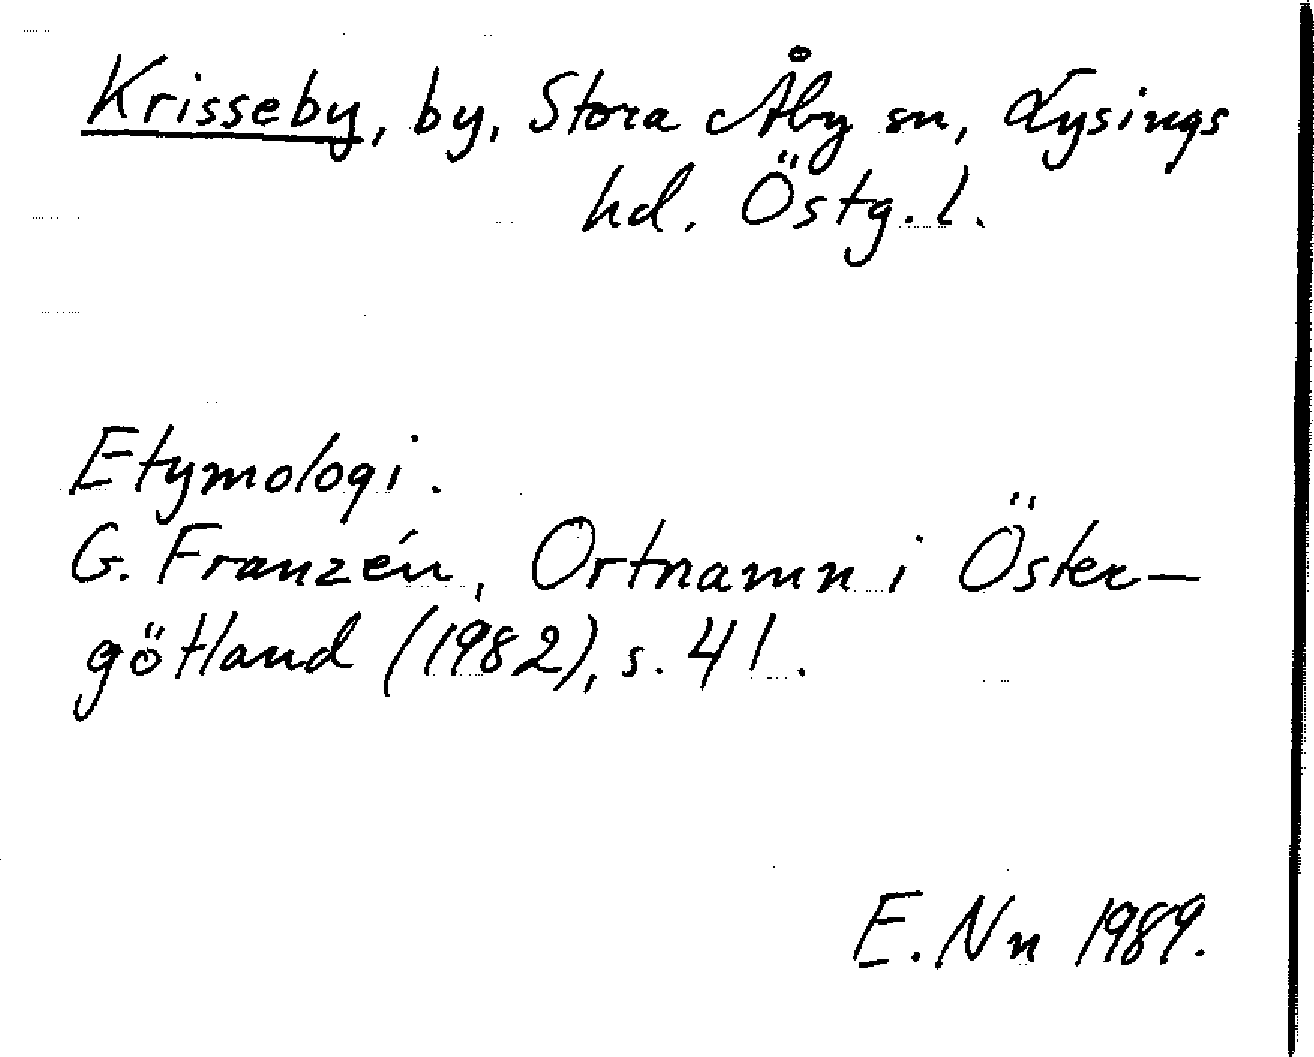 Krisseby, by, Stora Åby sn, Lysings
hd. Östg. l.
Etymologi.
G. Franzén, Ortnamn i Öster-
götland (1982), s. 41.
E. Nn 1989.